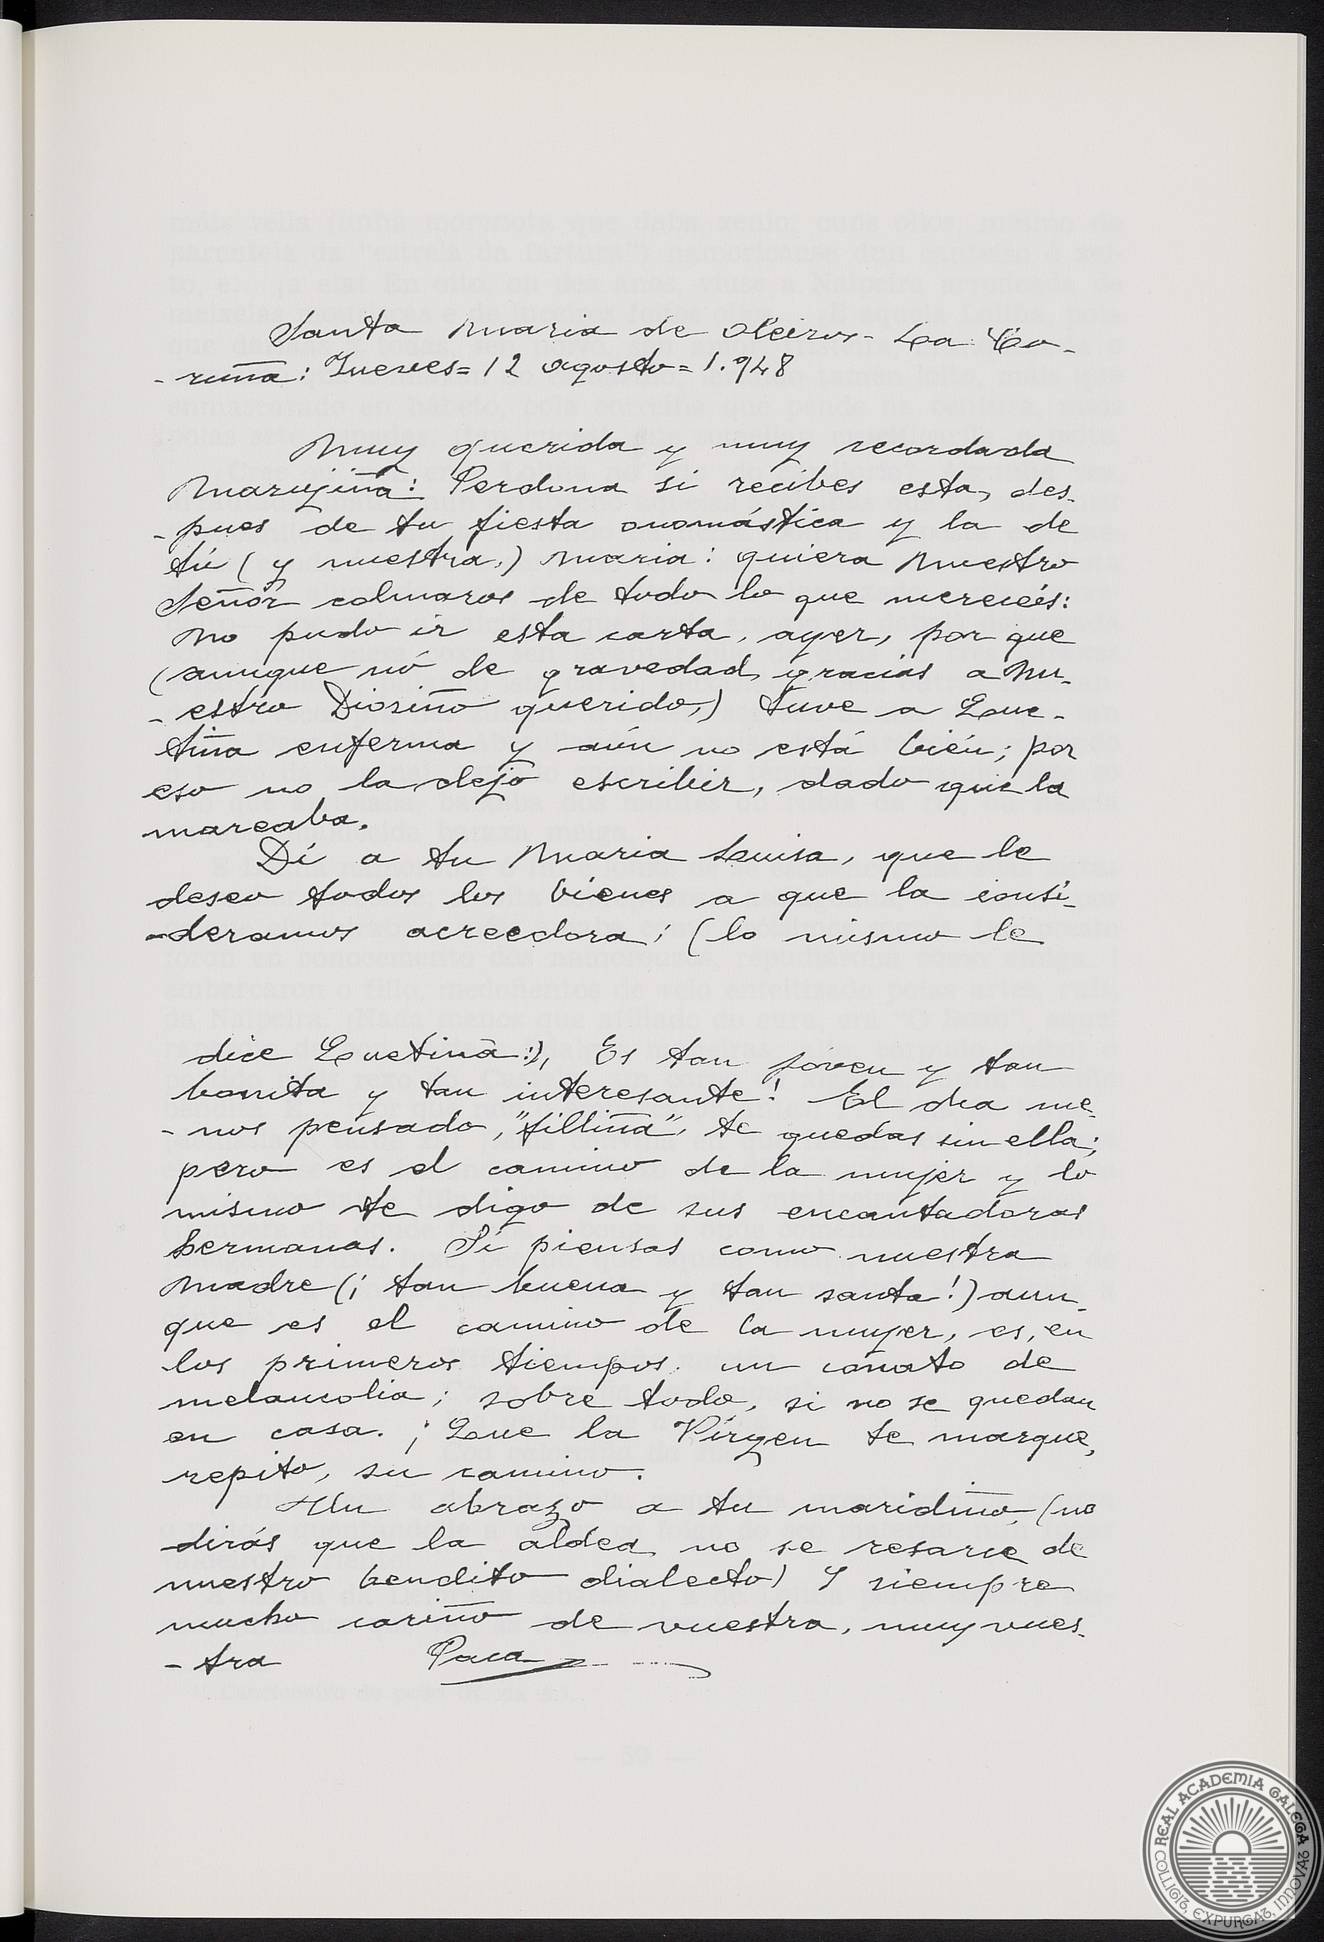 Santa Maria de Oleiros - La Co-
- ruña: Jueves = 12 agosto = 1.948
Muy querida y muy recordada
Marujiña: Perdona si recibes esta, des-
- pues de tu fiesta onomástica y la de
tú (y nuestra,) Maria: quiera Nuestro
Señor colmaros de todo lo que mereceis:
No pudo ir esta carta, ayer, por que
(aunque nó de gravedad, gracias a Nu-
- estro Diosiño querido,) tuve a Quc-
tiña enferma y aún no está bién; por
eso no la dejó escribir, dado que la
mareaba.
Dí a tu Maria Luisa, que le
deseo todos los bienes a que la consi-
- deramos acreedora; (lo mismo le
dice Quctiña:), Es tan jóven y tan
bonita y tan interesante! El dia me-
- nos pensado, "filliña", te quedas sin ella;
pero es el camino de la mujer y lo
mismo te digo de sus encantadoras
hermanas. Si piensas como nuestra
Madre (¡tan buena y tan santa!) aun-
que es el camino de la mujer, es, en
los primeros tiempos un conato de
melancolia; sobre todo, si no se quedan
en casa. ¡Que la Vírgen te marque,
repito, su camino.
Un abrazo a tu maridiño, (no
dirás que la aldea no se resarce de
nuestro bendito dialecto) Y siempre
mucho cariño de vuestra, muy vues-
- tra Paca
REAL ACADEMIA GALEGA
COLLIGIT, EXPURGAT, INNOVAT